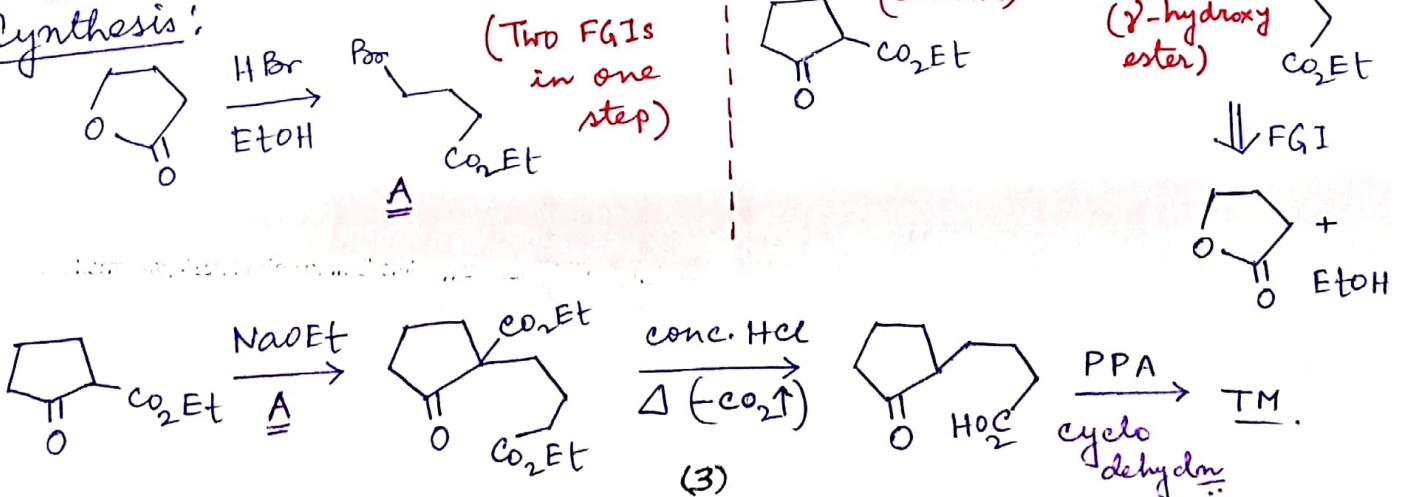 Synthesis:
HBr
EtOH
Br
CO₂Et
A
(Two FGIs
in one
step)
O
O
CO₂Et
O
(γ-hydroxy
ester)
CO₂Et
FGI
O
O
+
EtOH
CO₂Et
O
NaOEt
A
CO₂Et
O
CO₂Et
conc. HCl
Δ (-CO₂↑)
O
HO₂C
PPA
cyclo
dehydn
TM.
(3)